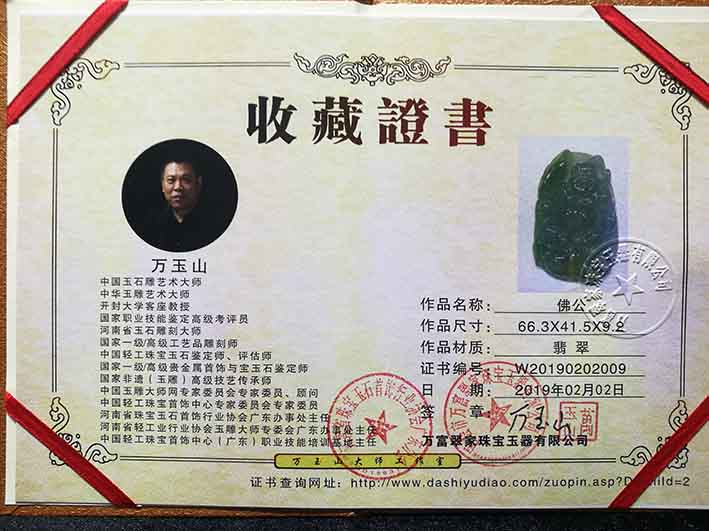 收藏證書
万玉山
中国玉石雕艺术大师
中华玉雕艺术大师
开封大学客座教授
国家职业技能鉴定高级考评员
河南省玉石雕刻大师
国家一级/高级工艺品雕刻师
中国轻工珠宝玉石鉴定师、评估师
国家一级/高级贵金属首饰与宝玉石鉴定师
国家非遗（玉雕）高级技艺传承师
中国玉雕大师网专家委员会专家委员、顾问
中国轻工珠宝首饰中心专家委员会专家委员
河南省珠宝玉石首饰行业协会广东办事处主任
河南省轻工业行业协会玉雕大师专委会广东办事处主任
中国轻工珠宝首饰中心（广东）职业技能培训基地主任
作品名称：佛公
作品尺寸：66.3X41.5X9.2
作品材质：翡翠
证书编号：W20190202009
日期：2019年02月02日
签章：万玉山
万富翠家珠宝玉器有限公司
万玉山大师工作室
证书查询网址：http://www.dashiyudiao.com/zuopin.asp?D